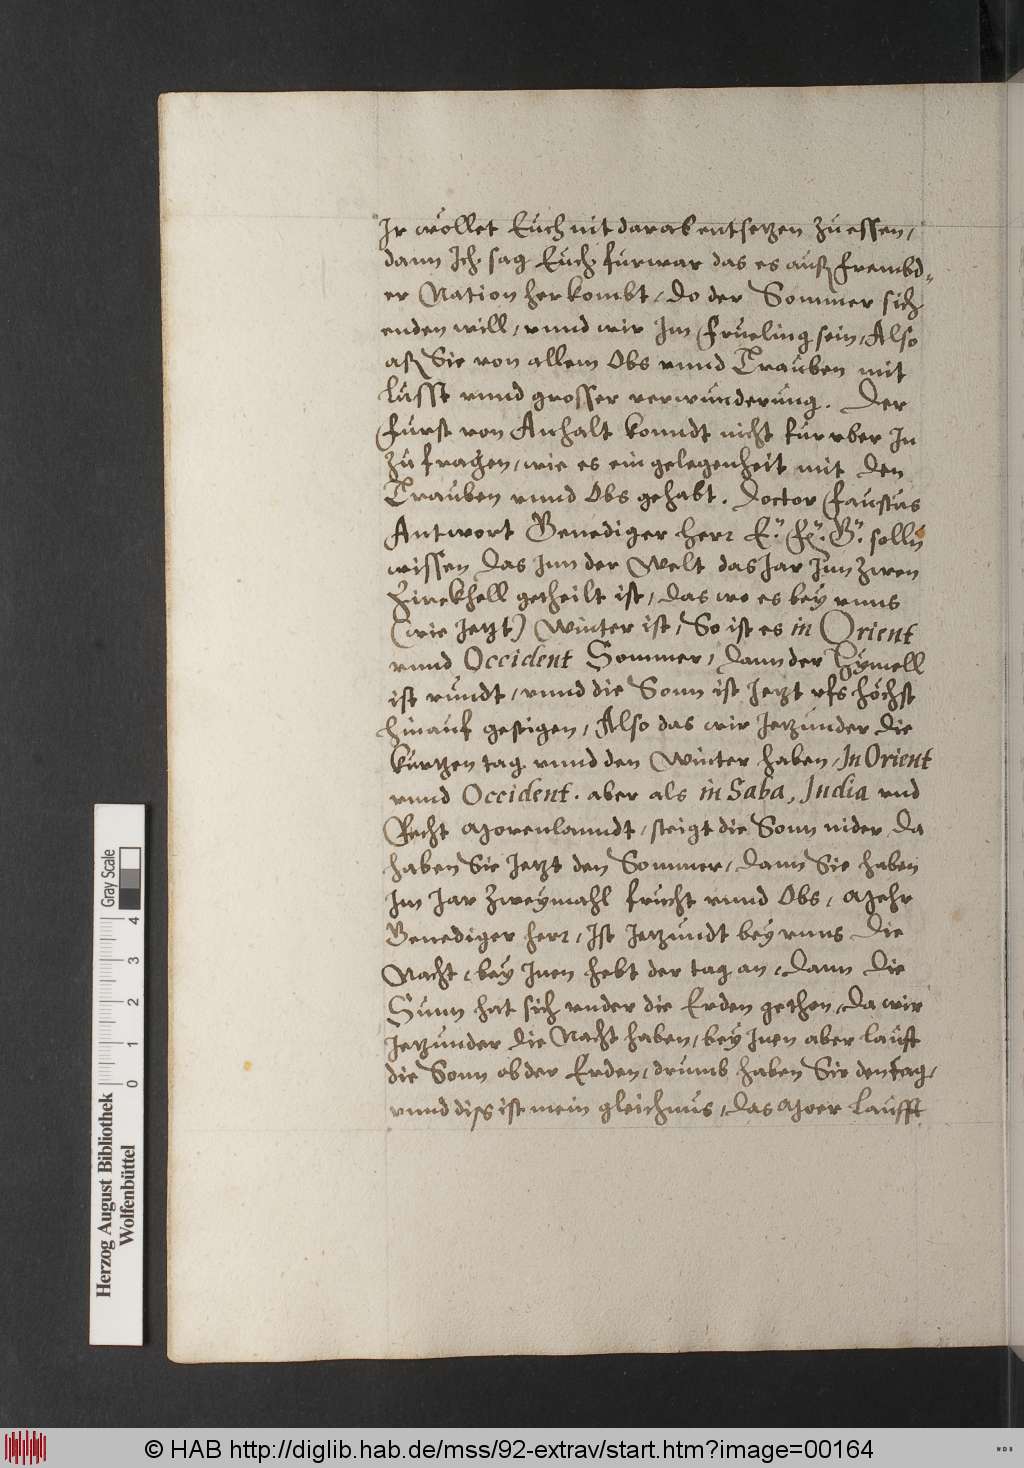 Ir wöllet Euch nit darab entsetzen zu essen,
dann Ich sag Euch furwar das es auß frembd¬
er Nation her kombt, do der Sommer sich
enden will, vnnd wir Im frueling sein, Also
aß Sie von allem Obs vnnd Trauben mit
lusst vnnd grosser verwunderung. Der
furst von Anhalt konndt nicht furvber In
zu fragen, wie es ein gelegenheit mit den
Trauben vnnd Obs gehabt. Doctor faustus
Antwort Genediger herr E: F: G: solln
wissen das Inn der Welt das Jar Inn zwen
Zirckhell getheilt ist, das wo es bey vnns
(wie Jetzt) Winter ist, So ist es in Orient
vnnd Occident Sommer, dann der hymell
ist rundt, vnnd die Sonn ist Jetzt vfs höchst
hinauf gestigen, Also das wir Jetzunder die
kurtzen tag vnnd den Winter haben, In Orient
vnnd Occident. aber als in Saba, India vnd
Recht Morenlanndt, steigt die Sonn nider, Da
haben Sie Jetzt den Sommer, dann Sie haben
Im Jar zweymahl frucht vnnd Obs, Mehr
Genediger herr, Ist Jetzundt bey vnns die
Nacht, bey Inen hebt der tag an, dann die
Sunn hat sich vnder die Erden gethon, da wir
Jetzunder die Nacht haben, bey Inen aber lauft
die Sonn ob der Erden, drumb haben Sie den tag,
vnnd diß ist mein gleichnus, das Moer laufft
Herzog August Bibliothek
Wolfenbüttel
0 1 2 3 4
Gray Scale
© HAB http://diglib.hab.de/mss/92-extrav/start.htm?image=00164